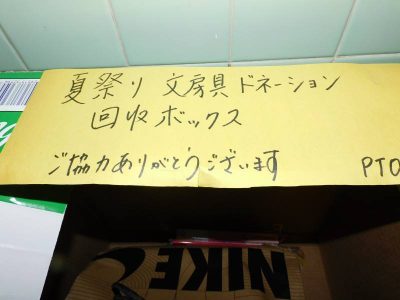 夏祭り 文房具 ドネーション
回収ボックス
ご協力ありがとうございます
PTO
NIKE